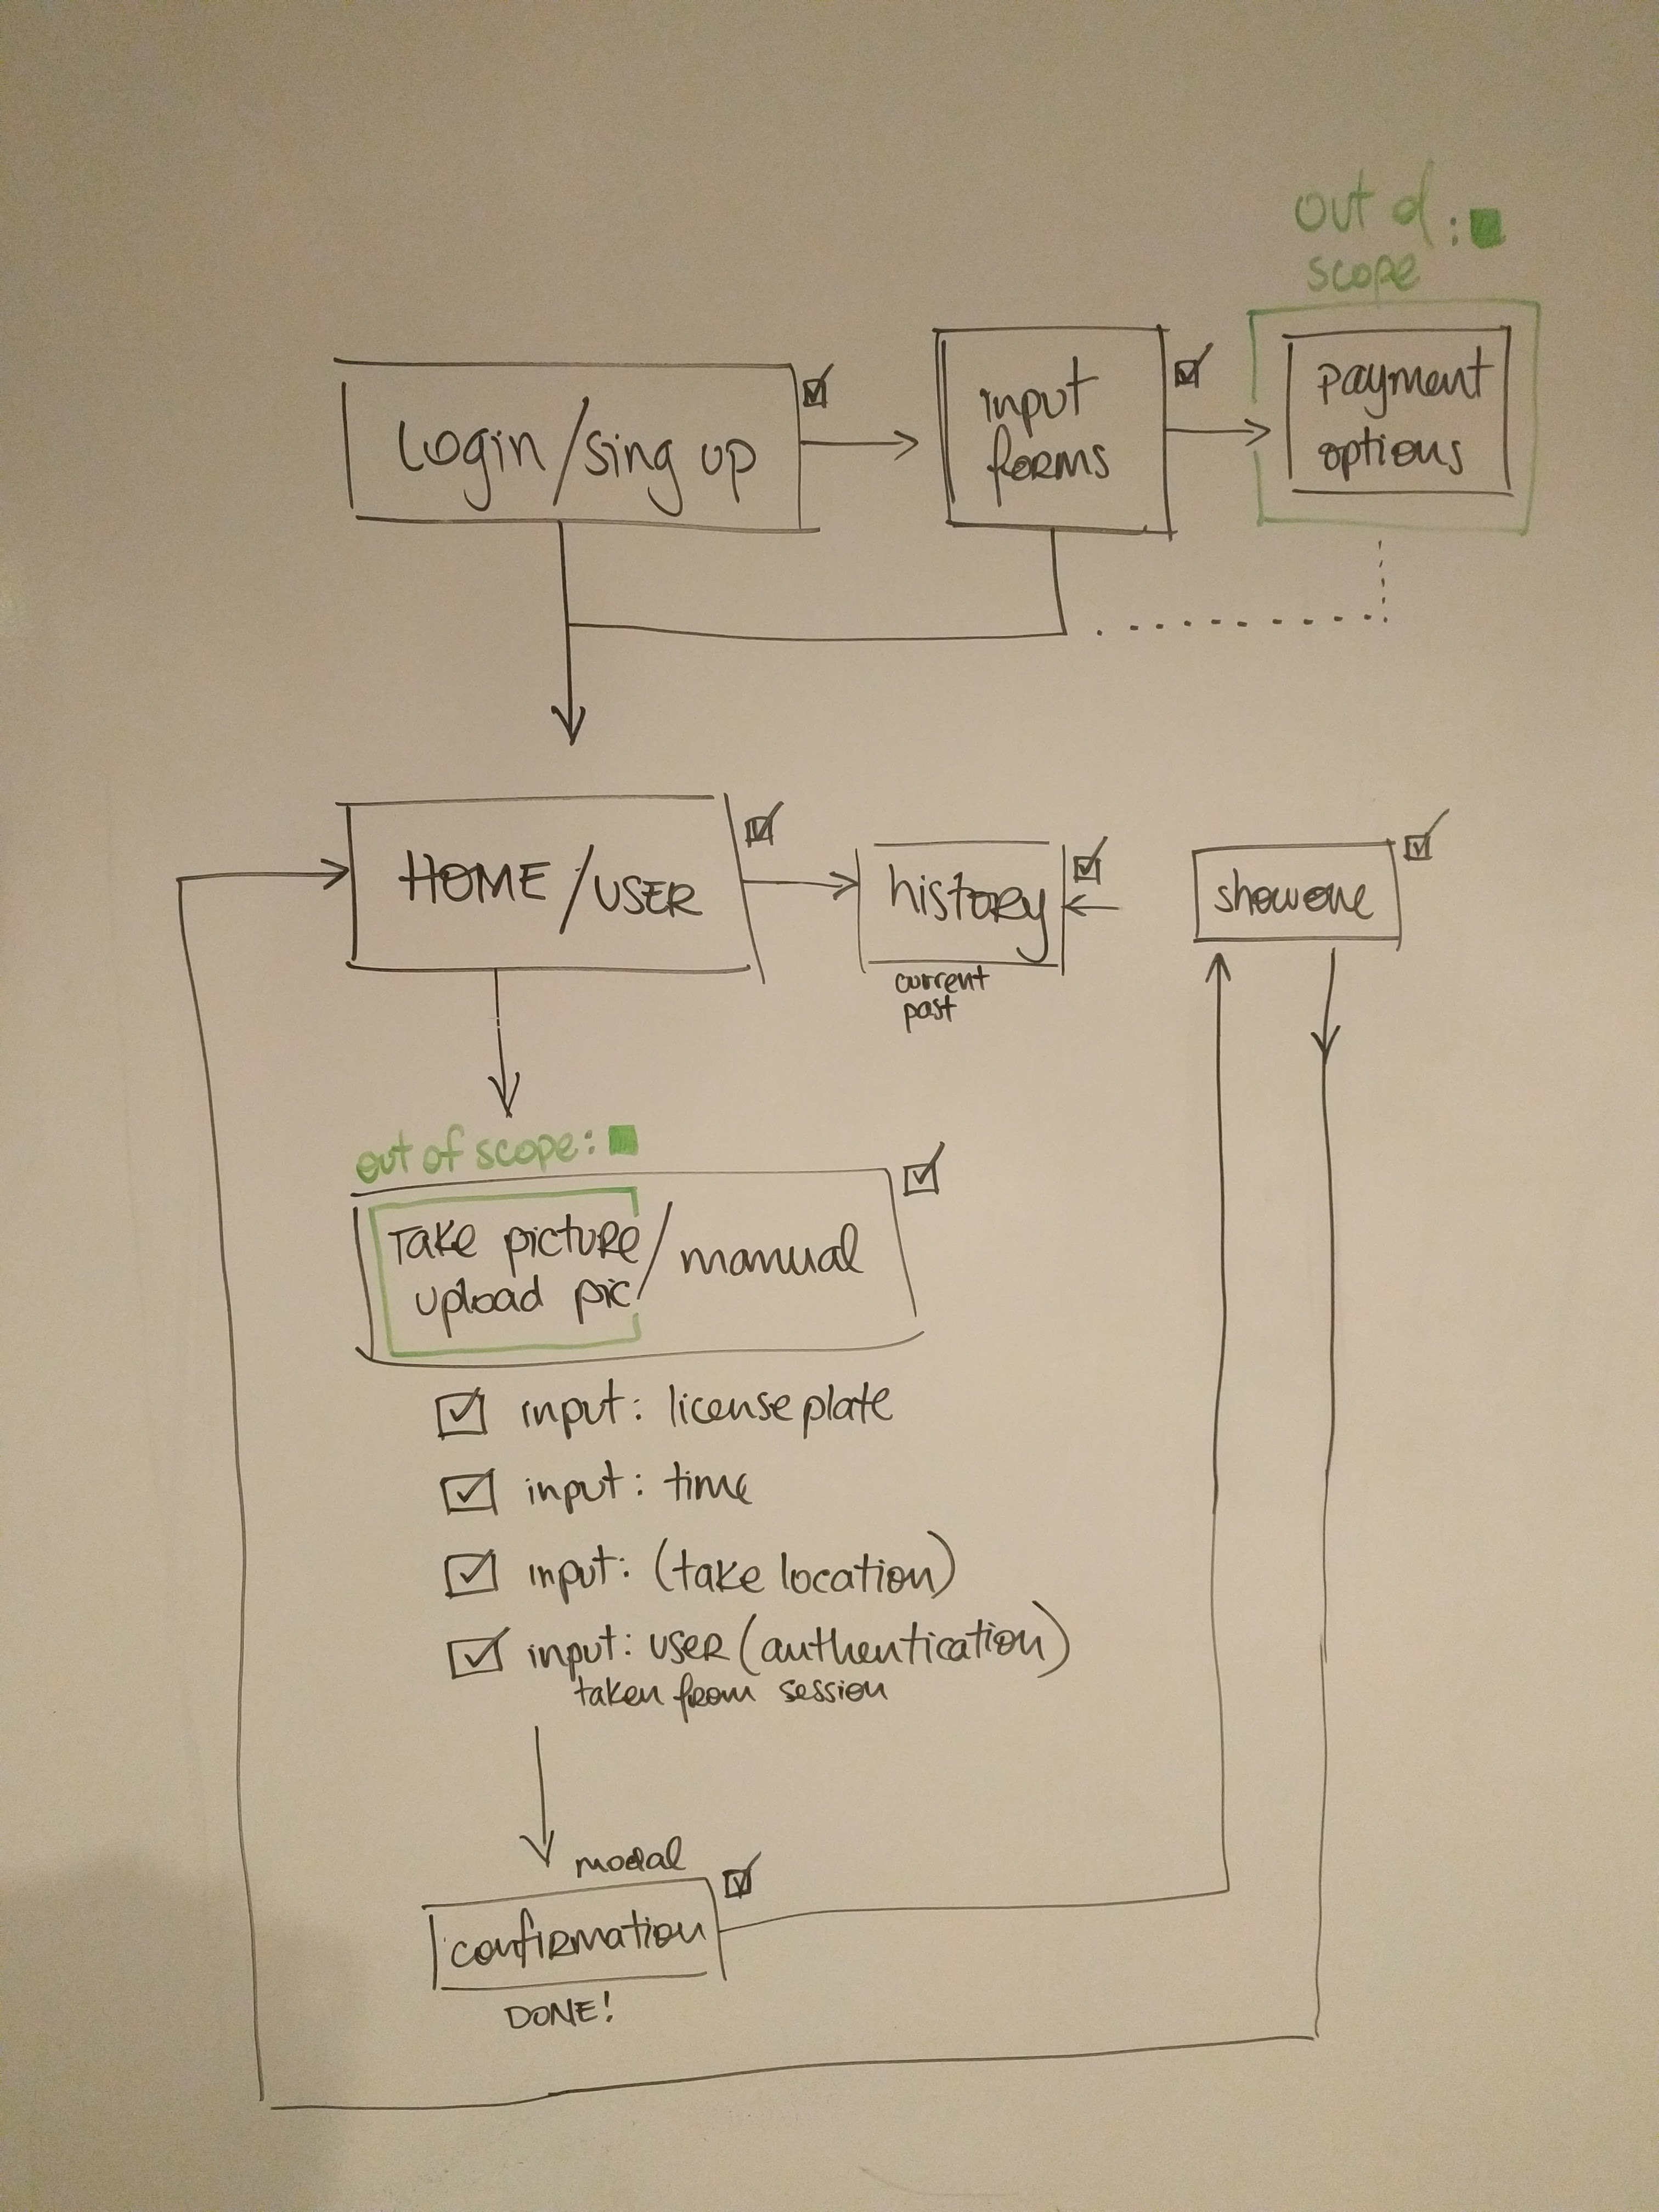 out of :
scope
Login/sing up
input
forms
payment
options
HOME/USER
history
current
past
showone
out of scope:
Take picture
upload pic
/ manual
input: license plate
input: time
input: (take location)
input: user (authentication)
taken from session
modal
confirmation
DONE!